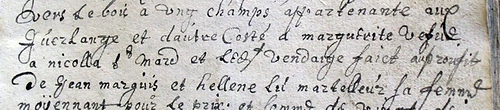 vers le boi à ung champs appartenante aux
Querlange et d'autre Coste a marguerite vefue
a nicolla st Mard et Ledt vendaige faict au proufit
de Jean marquis et hellene Lil martelleur sa femme
moÿennant pour le prix et somme de